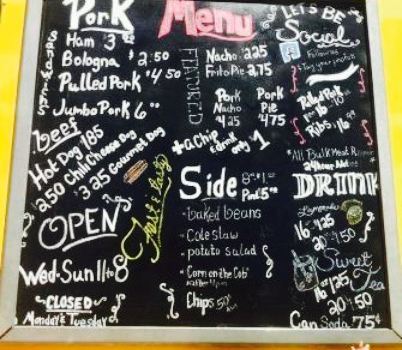 Pork
Sandwiches
Ham 3
Bologna 2.50
Pulled Pork 4.50
Jumbo Pork 6
Beef
Hot Dog 1.85
2.50 Chili Cheese Dog
3.25 Gourmet Dog
OPEN
Fast & Tasty
Wed-Sun 11 to 8
CLOSED
Monday & Tuesday
Menu
FEATURED
Nacho 2.25
Frito Pie 2.75
Pork Nacho 4.25
Pork Pie 4.75
+ a chip & drink only $1
Side
8oz $1.50
Pint 5.00
baked beans
Coleslaw
potato salad
Corn on the Cob
Chips 50¢
LET'S BE
Social
Follow us
Tag your photos
Pulled Pork
Ribs
*All Bulk Meat
24 hour Notice
DRINK
Lemonade
16oz 1.25
20oz 4.50
Sweet Tea
16oz 1.25
20oz 4.50
Can Soda 75¢